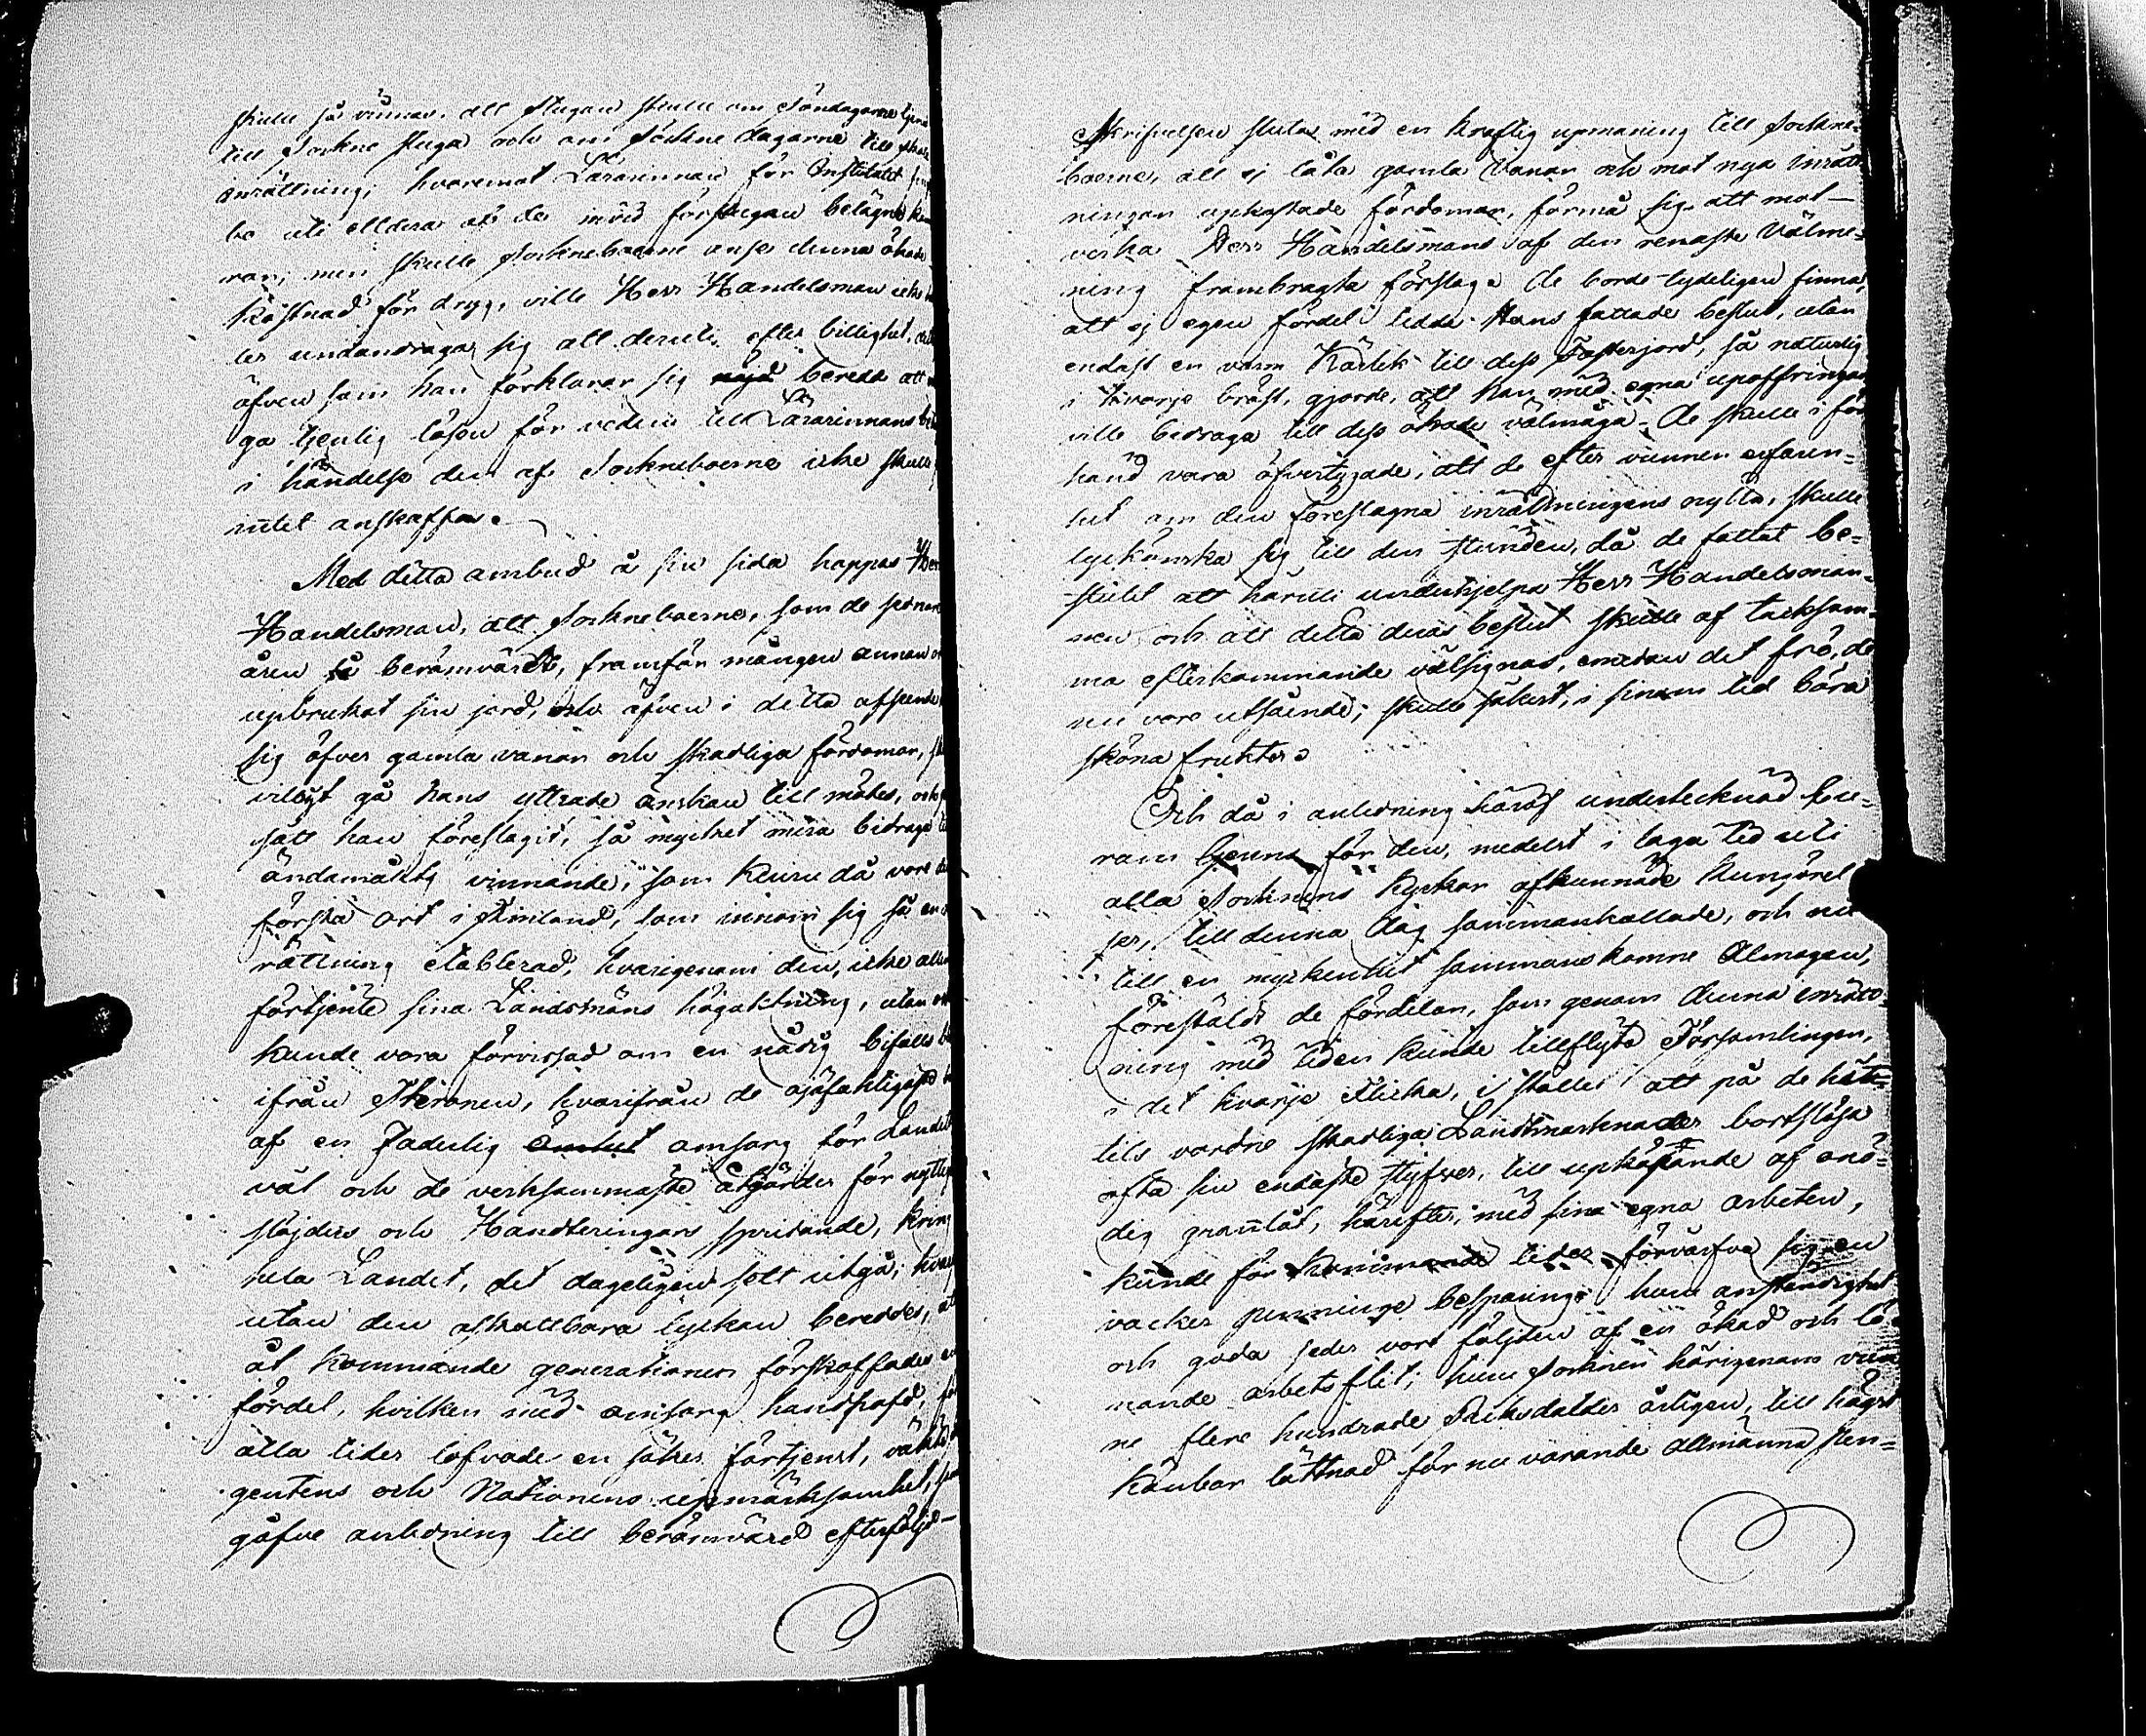 skulle så vinnas, att stugan skulle om Söndagarne tjena
till Sockne stuga och om Söckne dagarne till skole
inrättning; hvaremot Lärarinnan för Institutet
bo uti ettdera af de invid förstugan belägne
rar; men skulle Sockneboerne anse denna ökade
kostnad för dryg, ville Herr Handelsman icke
ler undandraga sig att deruti efter billighet,
äfven som han förklarar sig beredd att
ga tjenlig lösen för veden till Lärarinnans
i händelse den af Sockneboerne icke skulle
intet anskaffas.
Med detta anbud å sin sida hoppas Herr
Handelsman, att Sockneboerne, som de senare
åren så berömvärdt, framför mången annan
upbrukat sin jord, och äfven i detta afseende
sig öfver gamla vanor och skadliga fördomar,
villigt gå hans yttrade önskan till mötes, och
sätt han föreslagit, så mycket mera bidraga
ändamålets vinnande, som Kiuru då vore
första ort i Finland, som innom sig så en
rättning etablerad, hvarigenom den, icke
förtjente sina Landsmäns högaktning, utan
kunde vara förvissad om en nådig bifalls
ifrån Thronen, hvarifrån de
af en Faderlig ömhet omsorg för Landets
väl och de verksammaste åtgärder för
slöjders och Handteringars spridande, kring
hela Landet, det dageligen sett utgå;
utan den oskattbara lyckan bereddes,
åt kommande generationer förskaffades
fördel, hvilken med omsorg handhafd,
alla tider lofvade en säker förtjenst,
gentens och Nationens upmärksamhet,
gåfve anledning till berömvärd efterföljd-
Skrifvelsen slutas med en kraftig upmaning till Sockne-
boerne, att ej låta gamla vanor och mot nya inrätt-
ningar upkastade fördomar, förmå sig att mot-
verka Herr Handelsmans af den renaste välme-
ning frambragta förslag. De borde tydeligen finna
att ej egen fördel ledde Hans fattade beslut, utan
endast en varm Kärlek till dess Fosterjord, så naturlig
i hvarje bröst, gjorde, att han med egna upoffringar
ville bidraga till dess ökade välmåga. De skulle i för
hand vara öfvertygade, att de efter vunnen erfaren-
het om den föreslagna inrättningens nytta, skulle
lyckönska sig till den stunden, då de fattat be-
slutet att häruti underhjelpa Herr Handelsman-
nen och att detta deras beslut skulle af tacksam-
ma efterkommande välsignas, emedan det frö, de
nu vore utsående; skulle säkert, i sinom tid bära
sköna frukter.
Och då i anledning häraf undertecknad
för den, medelst i laga tid uti
alla Socknens Kyrkor afkunnade Kungörel
ser, till denna dag sammankallade, och nu
till en myckenhet sammankomne Almogen,
föreställt de fördelar, som genom denna inrätt-
ning med tiden kunde tillflyta Församlingen,
i det hvarje Flicka, i stället att på de hit-
tils vordne skadliga Landtmarknader bortslösa
ofta sin endaste styfver, till upköpande af onö-
dig grannlåt, härefter, med sina egna arbeten,
kunde för kommande tider förvärfva sig en
vacker penninge besparing; huru anständighet
och goda seder vore följden af en ökad och lö-
nande arbetsflit; huru Socknen härigenom vun
ne flere hundrade Riksdaler årligen, till högst
känbar lättnad för nu varande allmänna pen-